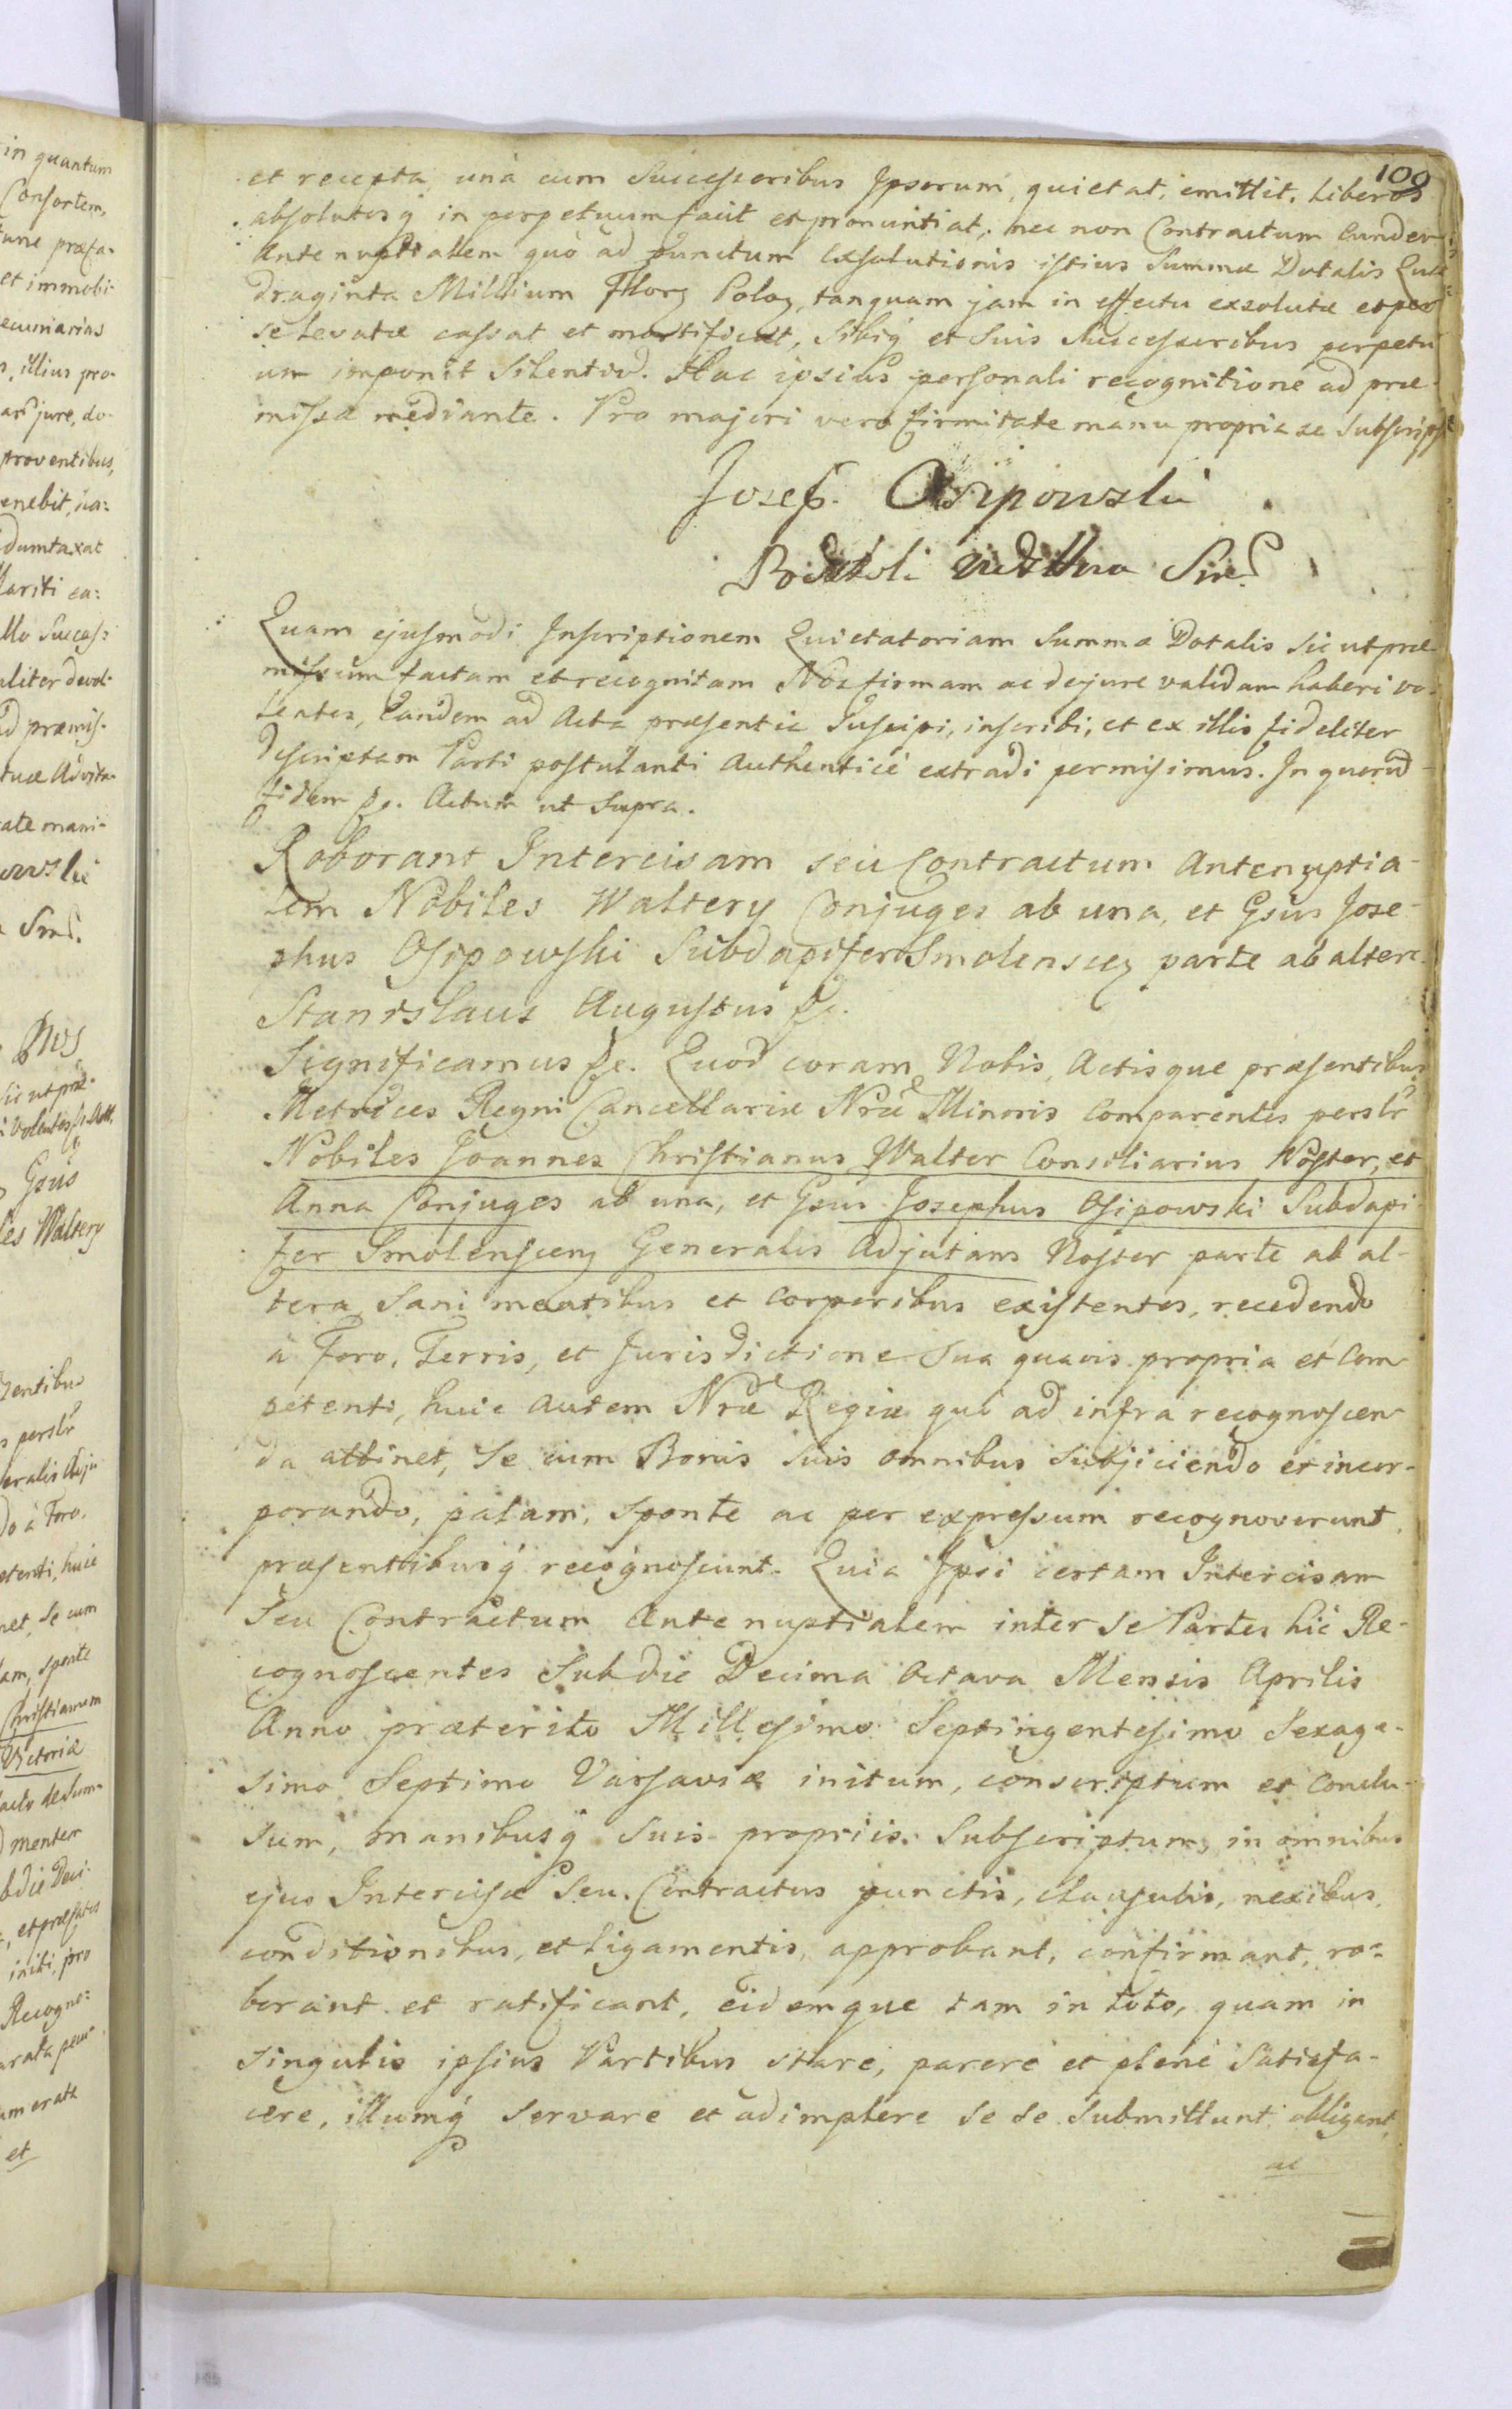 109
et recepta una cum Successoribus Ipsorum, quietat, emittit, liberos
absolutosq́ in perpetuum facit et pronuntiat, nec non Contractum eundem
Antenuptialem quò ad punctum exsolutionis istius Summæ Dotalis Qua
draginta Millium Floren Polon, tanquam jam in effectu exsolutæ et per
se levatæ cassat et mortificat, Sibiq́ et Suis Successoribus perpetu
um imponit Silentiũ. Hac ipsius personali recognitione ad præ
missa mediante. Pro majori vero firmitate manu propria se Subscripsit
Josef. Osipowski
Podstoli Smol.
Quam ejusmodi Inscriptionem Quietatoriam Summæ Dotalis sic ut præ
missum factam et recognitam Nos firmam ac de jure validam haberi vo
lentes, Eandem ad Acta præsentia Suscipi, inscribi, et ex illis fideliter
descriptam Parti postulanti authenticè extradi permisimus. In quorũ
fidem &c. Actum ut Supra.
Roborant Intercisam seu Contractum Antenuptia-
lem Nobiles Waltery Conjuges ab una, et Gsus Jose-
phus Osipowski Subdapifer Smolenscen parte ab altera.
Stanislaus Augustus &c.
Significamus &c. Quod coram Nobis, Actisque præsentibus
Metrices Regni Cancellariæ Nræ Minoris Comparentes persłr
Nobiles Joannes Christianus Walter Consiliarius Noster, et
Anna Conjuges ab una, et Gsus Josephus Osipowski Subdapi-
fer Smolenscen Generalis Adjutans Noster parte ab al-
tera, Sani mentibus et Corporibus existentes, recedendo
à Foro, Terris, et Jurisdictione Sua quavis propria et Com
petenti, huic autem Nræ Regiæ quò ad infra recognoscen
da attinet, Se cum Bonis suis omnibus Subjiciendo et incor-
porando, palam, sponte ac per expressum recognoverunt,
præsentibusq́ recognoscunt. Quia Ipsi certam Intercisam
Seu Contractum Antenuptialem inter Se Partes hic Re-
cognoscentes Sub die Decima Octava Mensis Aprilis
Anno præterito Millesimo Septingentesimo Sexage-
simo Septimo Varsaviæ initum, conscriptum et Conclu-
sum, manibusq́ suis propriis Subscriptum, in omnibus
ejus Intercisæ Seu Contractus punctis, clausulis, nexibus,
conditionibus, et ligamentis, approbant, confirmant, ro-
borant et ratificant, eidemque tam in toto, quam in
singulis ipsius Partibus stare, parere et plenè Satisfa-
cere, illumq́ servare et adimplere se se Submittunt, obligant,
ac